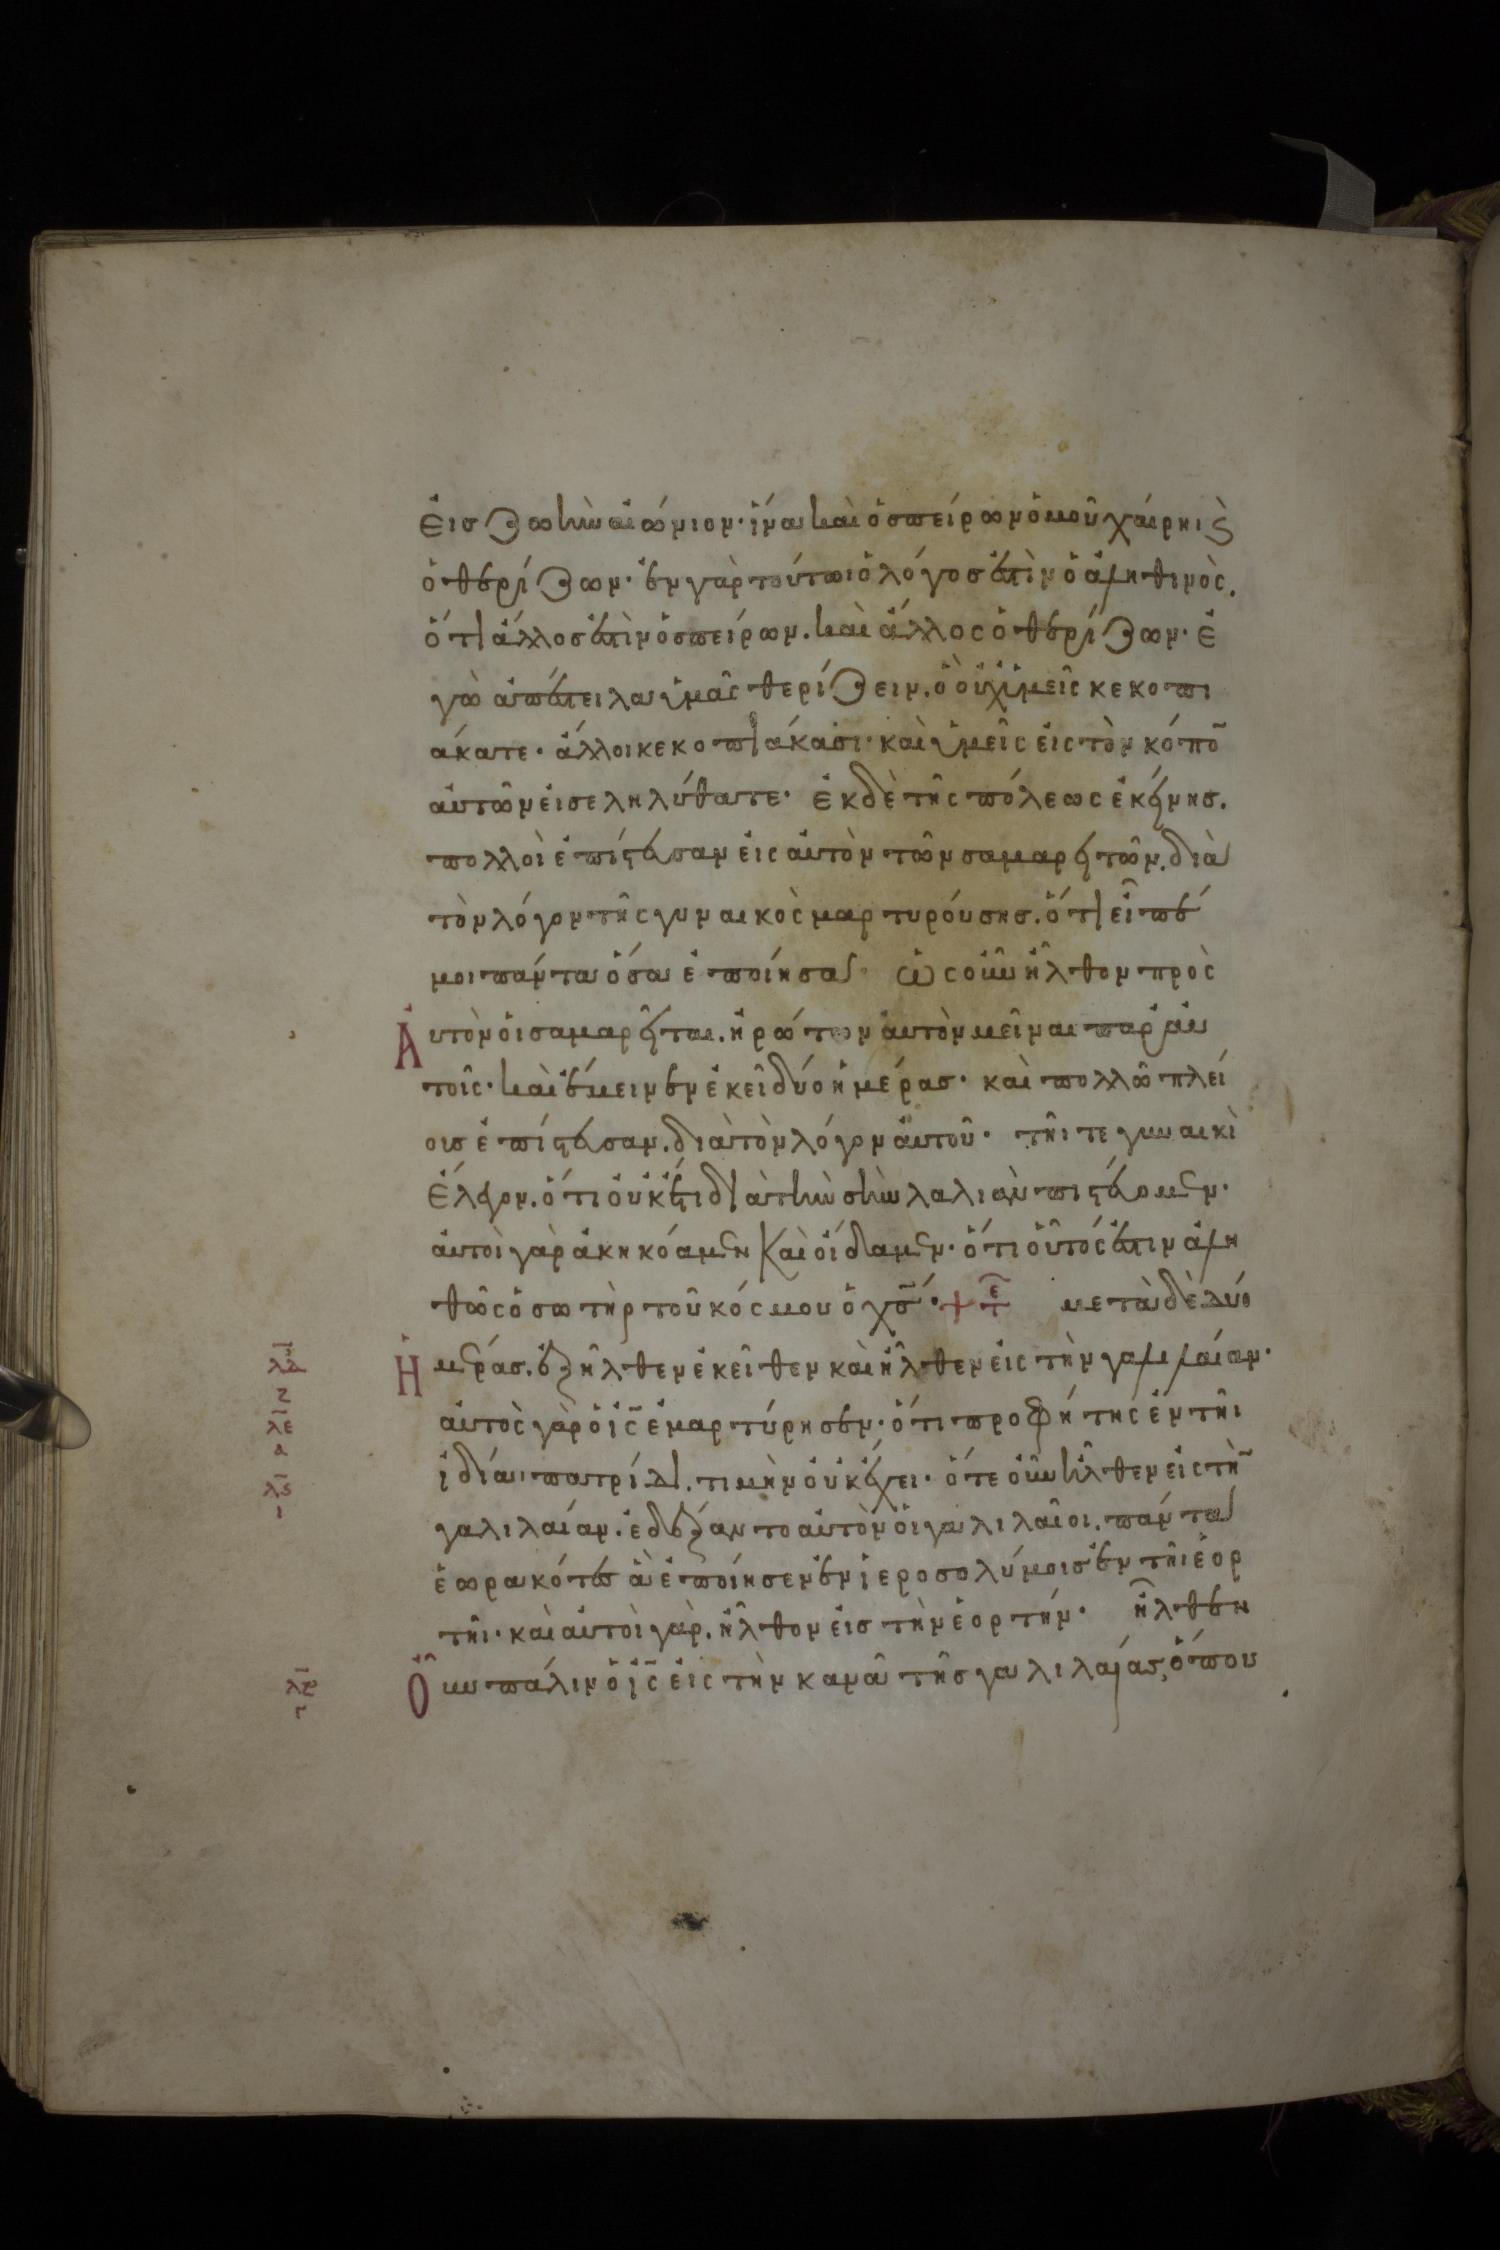 εἰσ ζωὴν αἰώνιον· ἵνα καὶ ὁ σπείρων ὁμοῦ χαίρηι ϗ
ὁ θερίζων· ἐν γὰρ τούτωι ὁ λόγοσ ἐστὶν ὁ ἀληθινὸς.
ὅτι ἄλλοσ ἐστὶν ὁ σπείρων. καὶ ἄλλος ὁ θερίζων· ἐ
γὼ ἀπέστειλα ὑμᾶς θερίζειν. ὃ οὐχ ὑμεῖς κεκοπι
άκατε· ἄλλοι κεκοπιάκασι· καὶ ὑμεῖς εἰς τὸν κόπο̄
αὐτῶν εἰσεληλύθατε· ἐκ δὲ τῆς πόλεως ἐκείνησ.
πολλοὶ ἐπίστευσαν εἰς αὐτὸν τῶν σαμαρειτῶν. διὰ
τὸν λόγον τῆς γυναικὸς μαρτυρούσησ. ὅτι εἶπέ
μοι πάντα ὅσα ἐποίησα· ὡς οὖν ἦλθον πρὸς
Αὐτὸν οἱ σαμαρεῖται. ἠρώτων αὐτὸν μεῖναι παρ' αὐ
τοῖς· καὶ ἔμεινεν ἐκεῖ δύο ἡμέρασ· καὶ πολλῶ πλεί
οισ ἐπίστευσαν. διὰ τὸν λόγον αὐτοῦ· τῆι τε γυναικὶ
ἔλεγον. ὅτι οὐκέτι διὰ τὴν σὴν λαλιὰν πιστεύομεν·
αὐτοὶ γὰρ ἀκηκόαμεν καὶ οἴδαμεν· ὅτι οὗτός ἐστιν ἀλη
θῶς ὁ σωτὴρ τοῦ κόσμου ὁ χ̄σ· + τε μετὰ δὲ δύο
Ἡμέρασ. ἐξῆλθεν ἐκεῖθεν καὶ ἦλθεν εἰς τὴν γαλιλαίαν·
λδ
ζ
αὐτὸς γὰρ ὁ ι̅ς̅ ἐμαρτύρησεν· ὅτι προφήτης ἐν τῆι
λε
α
ἰδίαι πατρίδι. τιμὴν οὐκ ἔχει· ὅτε οὖν ἦλθεν εἰς τὴ̄
λϛ
ι
γαλιλαίαν. ἐδέξαντο αὐτὸν οἱ γαλιλαῖοι. πάντα
ἑωρακότεσ ἃ ἐποίησεν ἐν ἱεροσολύμοισ ἐν τῆι ἑορ
τῆι· καὶ αὐτοὶ γὰρ. ἦλθον εἰσ τὴν ἑορτήν· ἦλθεν
Οὖν πάλιν ὁ ι̅ς̅ εἰς τὴν κανᾶ τῆσ γαλιλαίασ, ὅπου
λζ